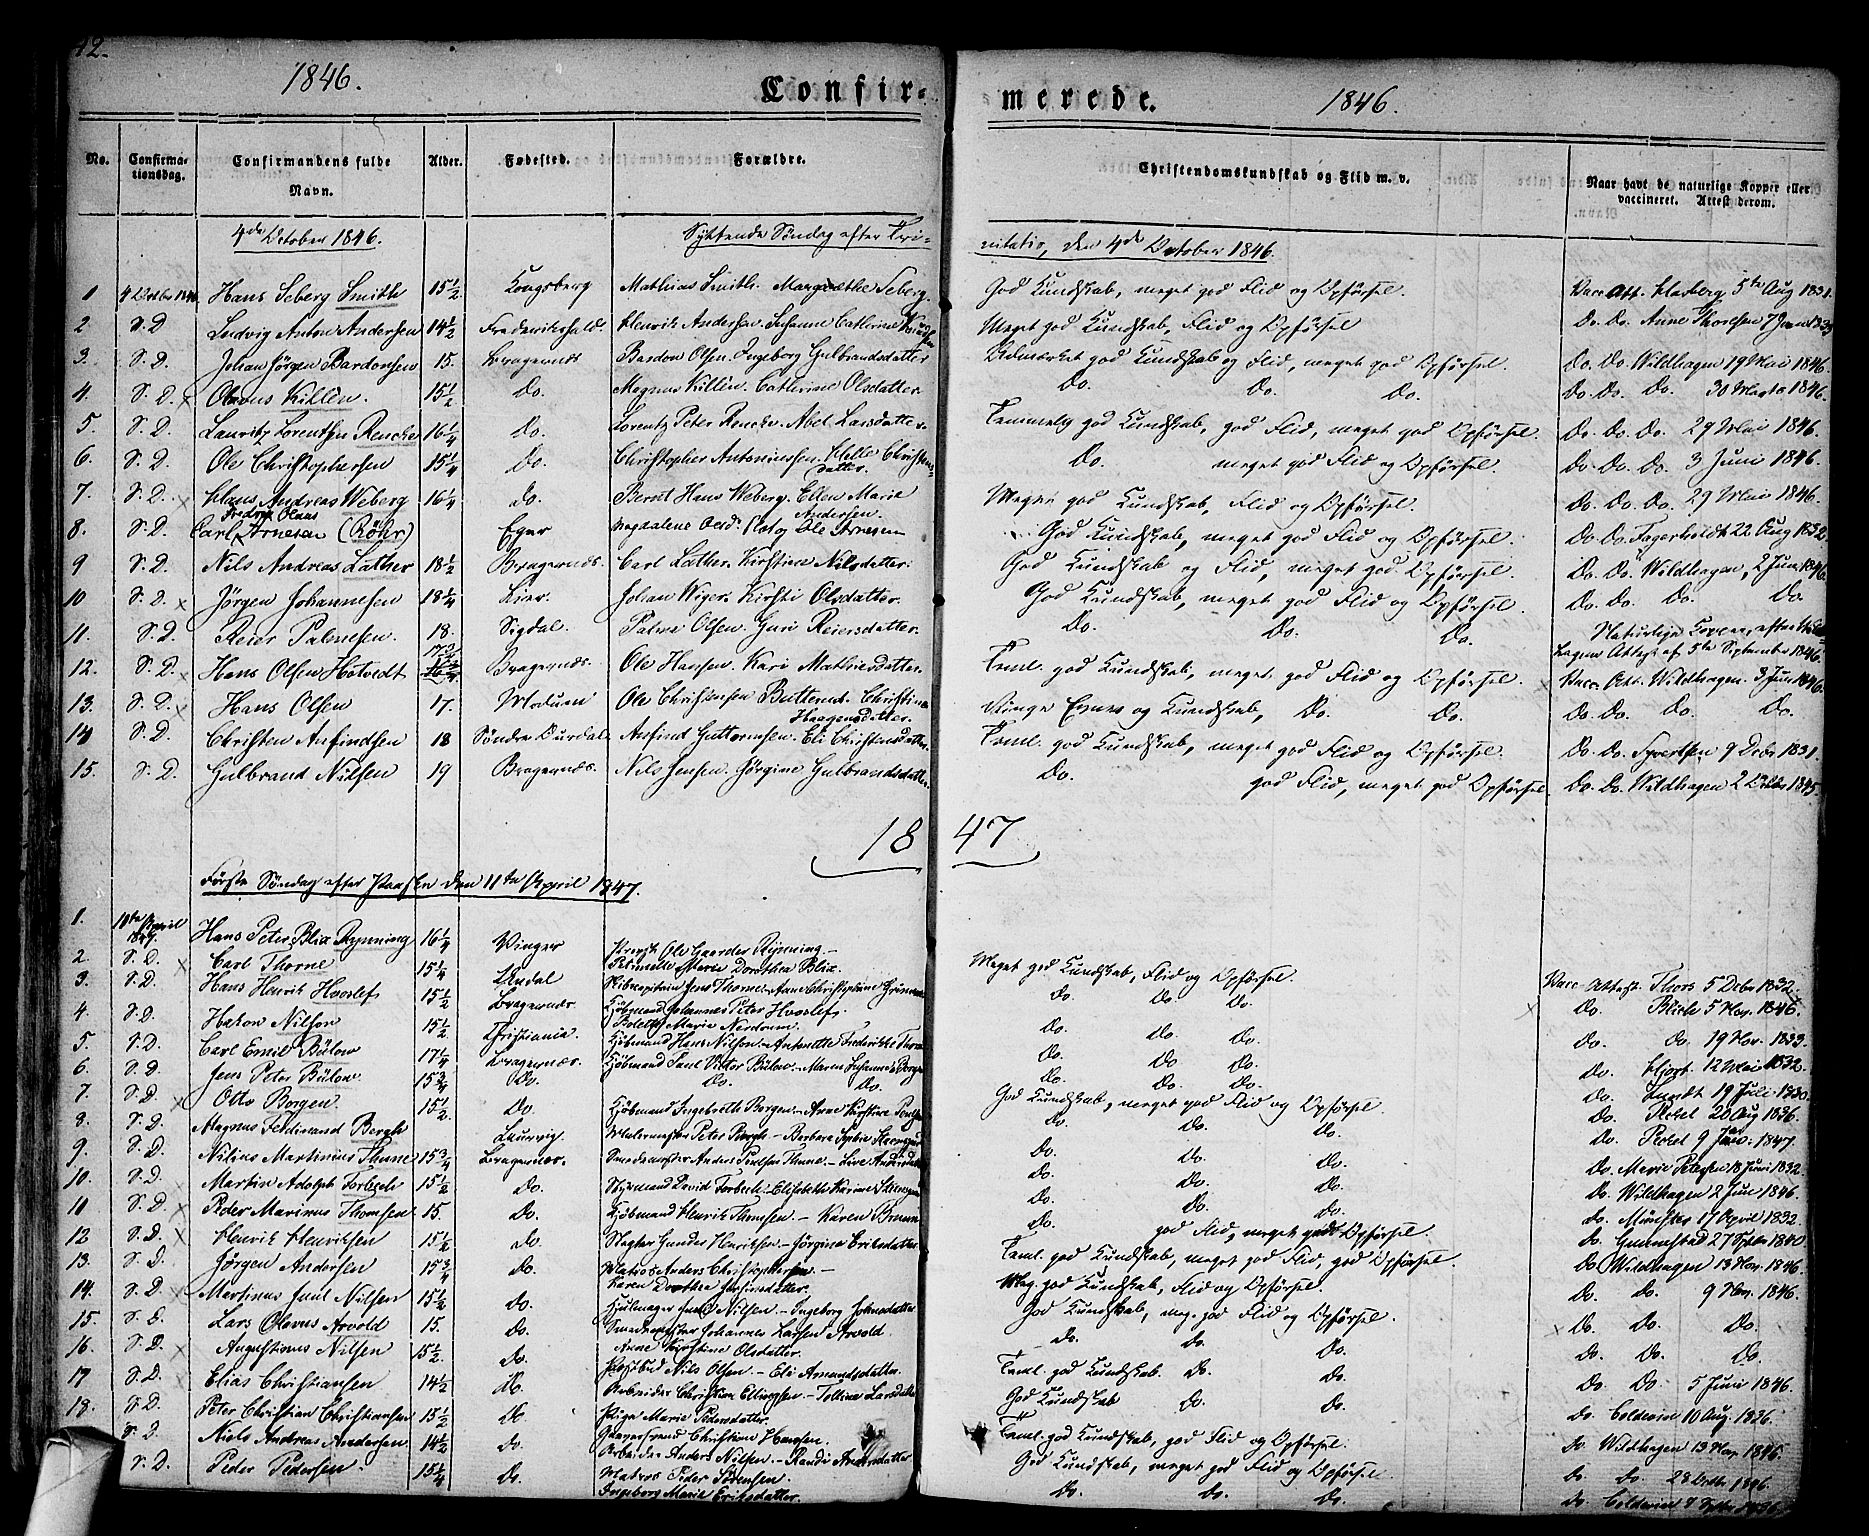 42.
1846.
Confir-
merede.
1846.
No.
Confirma-
tionsdag.
Confirmandens fulde
Navn.
Alder.
Fødested.
Forældre.
Christendomskundskab og Flid m. v.
Naar havt de naturlige Kopper eller
vaccineret. Attest derom.
4de October 1846.
Syttende Søndag efter Tri-
nitatis, den 4de October 1846.
1 4 Octbr 1846 Hans Seberg Smith 15 1/2 Kongsberg Mathias Smith. Margrethe Seberg. God Kundskab, meget god Flid og Opførsel. Vacc. Att. 5te Aug 1831.
2 S. D. Ludvig Anton Andersen 14 1/2 Frederikshald Henrik Andersen. Susanne Cathrine Meget god Kundskab, Flid og Opførsel Do. Do. Anne Thoresen
3. S. D. Johan Jörgen Bardonsen 15. Bragernæs Bardon Olsen. Ingeborg Gulbrandsdatter Udmærket god Kundskab og Flid, meget god Opførsel. Do. Do. Wildhagen 19 Mai 1846
4. S. D. Olavus Killén. 15 1/2 Do. Magnus Killén. Cathrine Olsdatter. Do. Do. Do. Do. Do. Do. 30 Marts 1846.
5. S. D. Lauritz Lorentsen Rencke 16 1/4 Do. Lorentz Peter Rencke. Abel Larsdatter Temmelig god Kundskab, god Flid, meget god Opførsel. Do. Do. Do. 29 Mai 1846.
6. S. D. Ole Christophersen 15 1/4 Do. Christopher Antoniussen. Helle Christens-
datter. Do. meget god Flid og Opførsel. Do. Do. Do. 3 Juni 1846.
7. S. D. Hans Andreas Weberg 16 1/4 Do. Bernt Hans Weberg. Ellen Marie
Andersen. Meget god Kundskab, Flid og Opførsel. Do. Do. Do. 29 Mai 1846.
Fredrik Olaus
8. S. D. Carl Arnesen (Röhr) Eger Magdalene Olsd. Ole Arnesen God Kundskab, meget god Flid og Opførsel. Do. Do. Fagerholdt 22 Aug 1832
9 S. D. Nils Andreas Lather 18 1/2 Bragernæs. Carl Lather. Kirstine Nilsdatter. God Kundskab og Flid, meget god Opførsel. Do. Do. Wildhagen, 2 Juni 1846.
10 S. D. Jörgen Johannesen 18 1/4 Lier. Johan Wiger. Kirsti Olsdatter. God Kundskab, meget god Flid og Opførsel. Do. Do. Do. Do.
11. S. D. Reier Palmesen. 18. Sigdal. Palme Olsen. Guri Reiersdatter. Do. Do. Do. Naturlige Kopper, efter
Attest af 5te September 1846.
12. S. D. Hans Olsen Hotvedt 17 3/4 Bragernæs. Ole Hansen. Kari Mathisdatter. Teml. god Kundskab, meget god Flid og Opførsel. Vacc. Att. Wildhagen. 3 Juni 1846.
13. S. D. Hans Olsen 17. Modum Ole Christensen Butterud. Christine
Haagensdatter. og Kundskab, Do. Do. Do. Do. Do. Do.
14 S. D. Christen Anfindsen 18 Söndre Aurdal Anfind Guttormsen. Eli Christensdatter. Teml. god Kundskab, meget god Flid og Opførsel. Do. Do. Syvertsen 9 Octbr 1831.
15. S. D. Gulbrand Nilsen 19 Bragernæs. Nils Jensen. Jörgine Gulbrandsdatter. Do. god Flid, meget god Opførsel Do. Do. Wildhagen 2 1845
1847
Første Søndag efter Paaske den 11te April 1847.
1. 11te April
1847. Hans Peter Blix Rynning 16 1/4 Vinger Ole Gaarder Rynning -
Marie Dorothea Blix. Meget god Kundskab, Flid og Opførsel. Vacc. Attest. Thors 5 Octbr 1832.
2. S. D. Carl Thorne 15 1/4 Jens Thorne. - Anne Christine Do. Do. Do. Do. Blich 5 Nov. 1846.
3. S. D. Hans Henrik Hvoslef 15 1/2 Bragernæs. Kjöbmand Johannes Peter Hvoslef
Bolette Marie Nordrum. Do. Do. Do. Do. 19 Nov. 1833.
4. S. D. Hakon Nilson 15 1/2 Christiania. Kjöbmand Hans Nilson. - Antonette Frederikke Do. Do. Do. Do. Hjort 12 Mai 1832.
5. S. D. Carl Emil Bülow 17 1/4 Bragernæs. Kjöbmand Paul Victor Bülow. - Maren Susanne Borgen Do. Do. Do. Do. Lundt 19 Juli 1830.
6. S. D. Jens Peter Bülow. 15 3/4 Do. Do. Do.
7. S. D. Otto Borgen. 15 1/2 Do. Kjöbmand Ingebreth Borgen. - Anne Kirstine God Kundskab, meget god Flid og Opførsel. Do. 20 Aug 1836.
8. S. D. Magnus Ferdinand Bergh Laurvig. Malermester Peter Bergh - Barbara Sophie Do. Do. Do. Do. 9 1847.
9. S. D. Nilius Martinius Thune 15 3/4 Bragernæs. Smedemester Anders Thune. - Live Do. Do. Do. Do. Marie Petersen 18 Juni 1832.
10. S. D. Martin Adolph Torbech 15 1/2 Do. Styrmand David Torbech. - Elisabeth Karine Do. Do. Do. Do. Wildhagen 2 Juni 1846.
11 S. D. Peder Marinus Thomsen 15. Do. Kjöbmand Henrik Thomsen. - Karen Do. Do. Do. Do. Münster 17 April 1832.
12 S. D. Henrik Henriksen 15 1/2 Do. Slagter Gunder Henriksen. - Jörgine Eriksdatter Do. god Flid, meget god Opførsel. Do. 27 1840
13. S. D. Jörgen Andersen 15 3/4 Do. Matros Anders Christophersen. -
Karen Dorthea Teml. god Kundskab, meget god Flid, god Opførsel. Do Wildhagen 13 Nov. 1846.
14. S. D. Martinus Juul Nilsen 15 1/2 Do. Juul Nilsen. - Ingeborg Johnsdatter Meg. god Kundskab, Flid og Opførsel. Do. Do. 9 Nov. 1846.
15. S. D. Lars Olavus Arvold 15. Do. Smedemester Johannes Larsen Arvold.
Anne Kirstine Olsdatter. God Kundskab, meg. god Flid og Opførsel. Do. Do. Do.
16. S. D. Augustinus Nilsen 15 1/2. Do. Postbud Nils Olsen. - Eli Amundsdatter. Do. Do. Do. Do. Do. Do.
17 S. D. Elias Christiansen 14 1/2 Do. Arbeider Christian Ellingsen. - Tolline Larsdatter Teml. god Kundskab. Do. Do. Do. Do. 5 Juni 1846.
18. S. D. Peter Christian Christiansen 15 1/2 Do. Pige Marie Pedersdatter.
Christian Hansen. God Kundskab Do. Do. Do. Coldevin 10 Aug. 1836.
S. D. Niels Andreas Andersen 14 1/2 Do. Arbeider Anders Nilsen. - Randi Andersdatter Teml. god Kundskab, god Flid og Opførsel. Do. Wildhagen 13 Nov. 1846.
S. D. Peder Pedersen. 15 1/4 Do. Matros Peder Sörensen.
Ingeborg Marie Eriksdatter. God Kundskab, meget god Flid og Opførsel. Do. Do. 28 Octbr 1846.
Do. Do. Do. Do. Coldevin 1836.